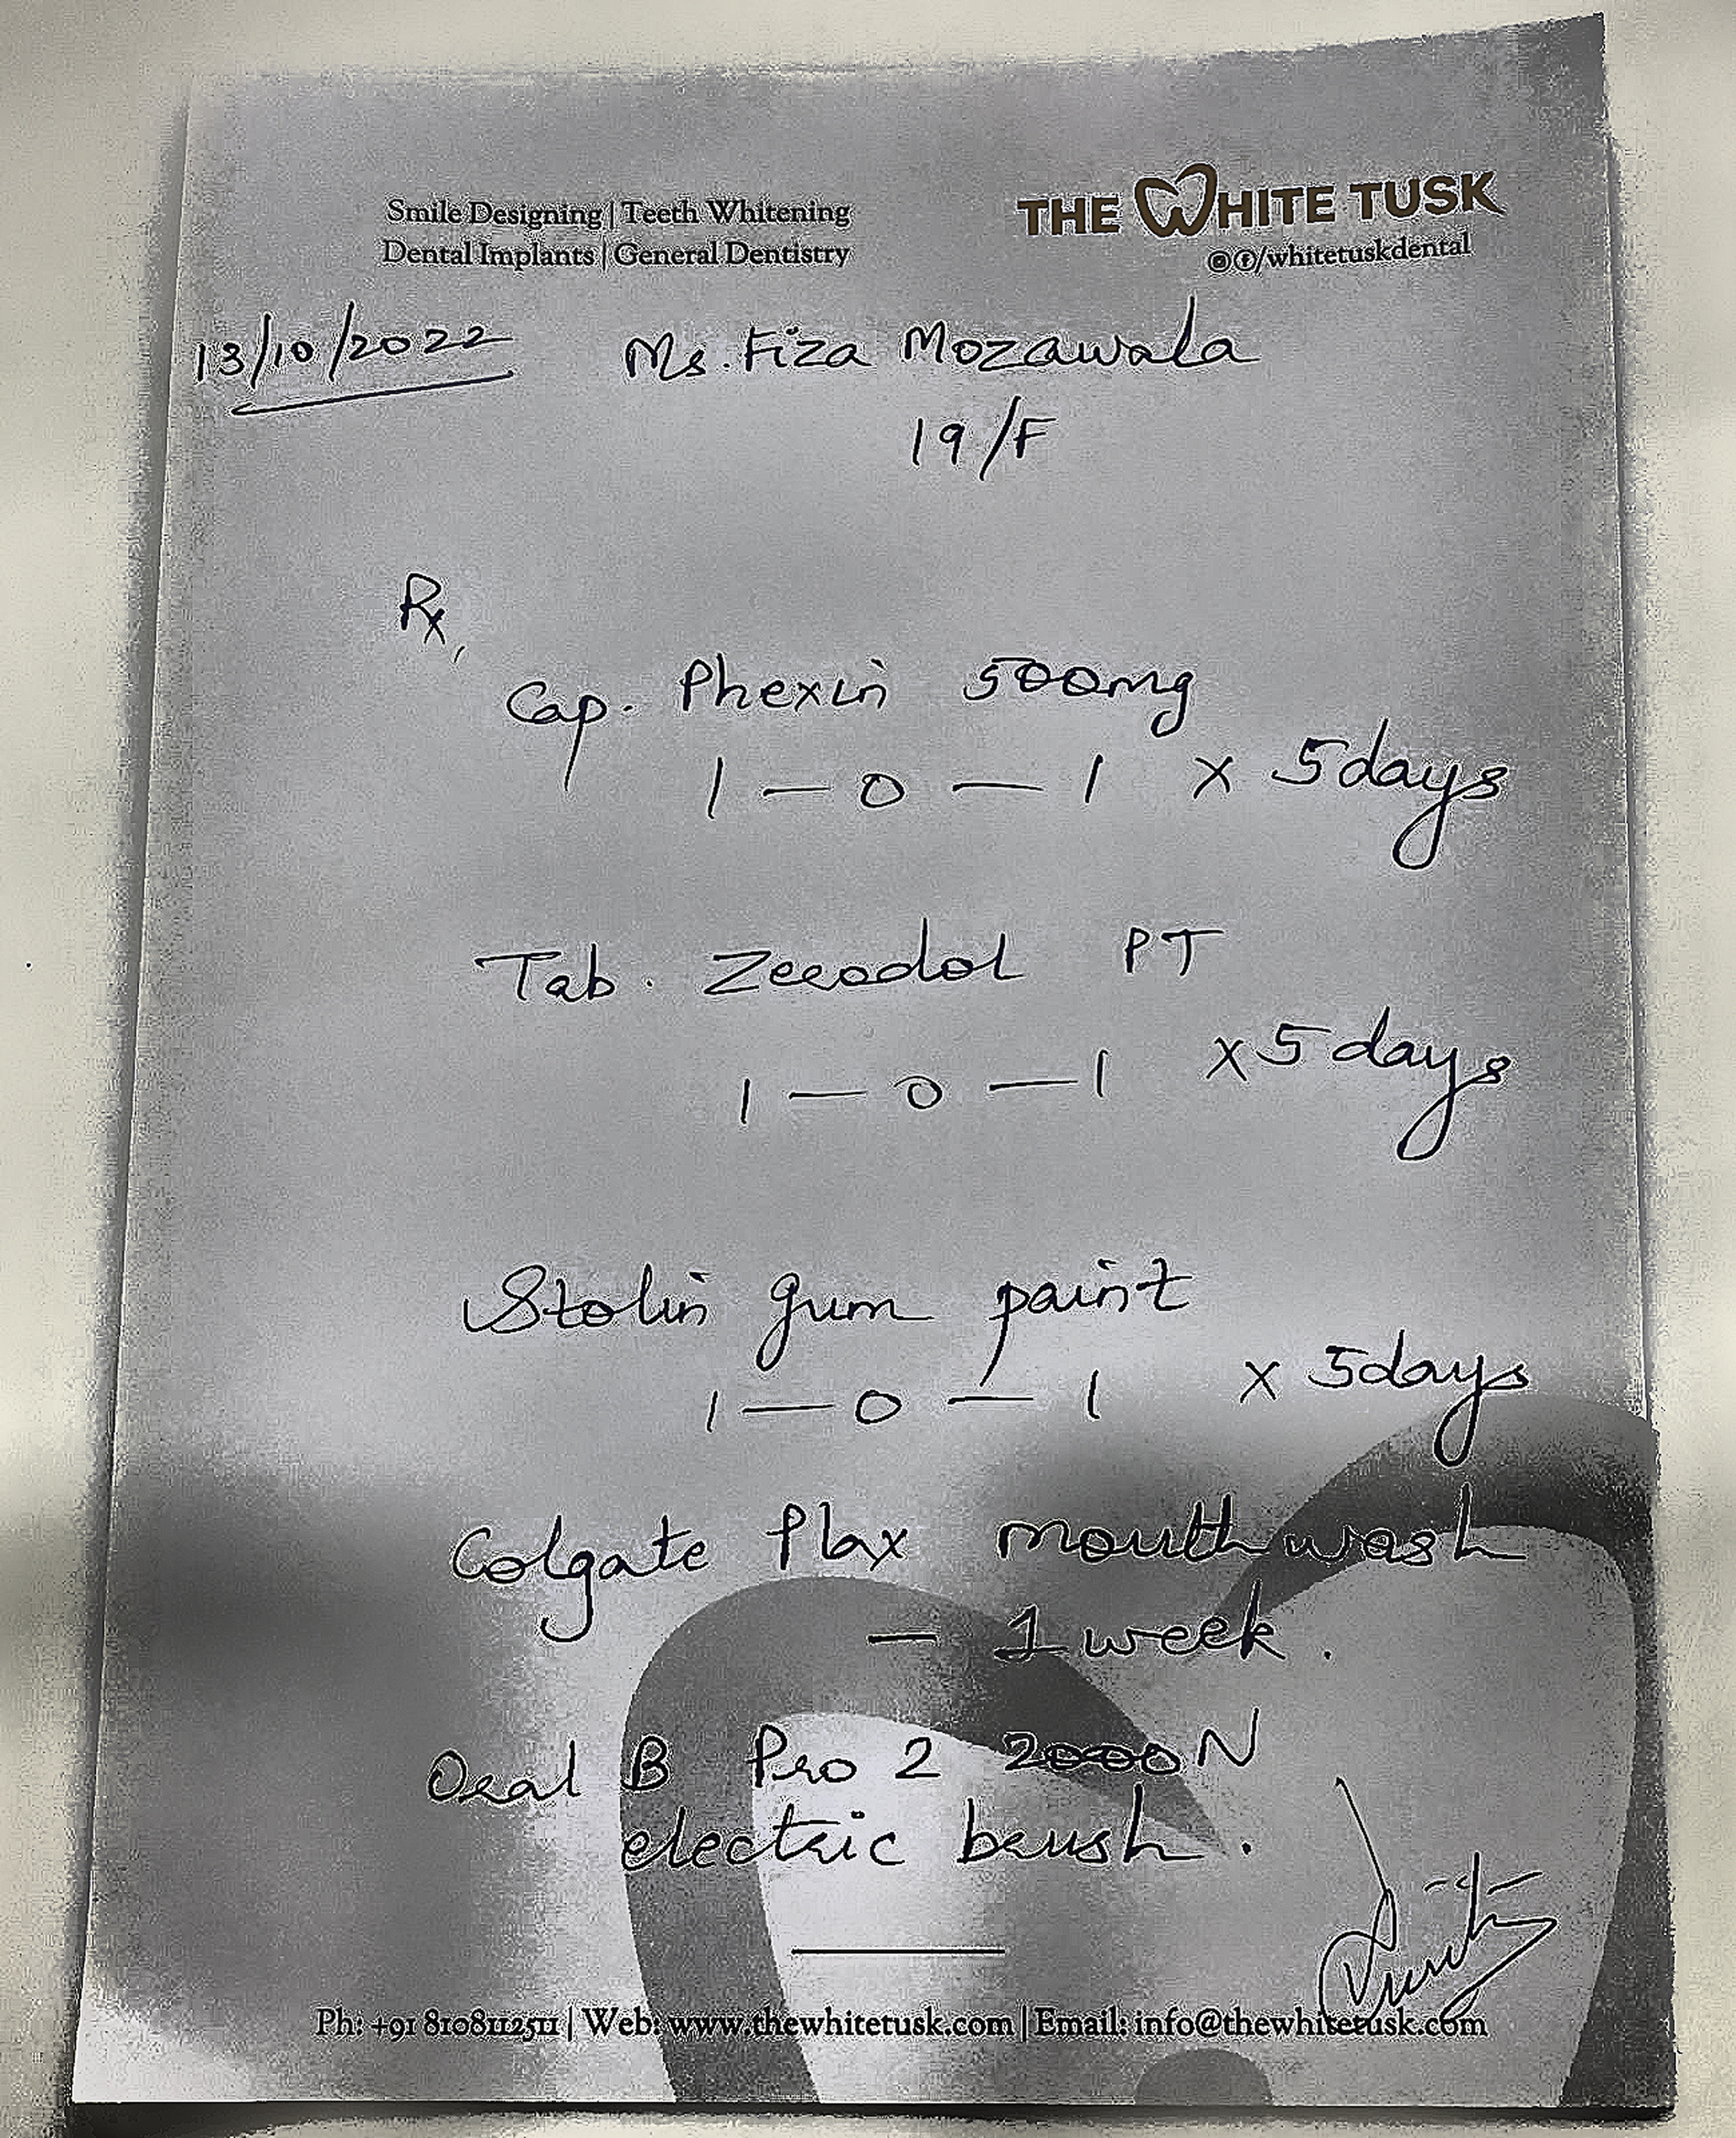 Smile Designing | Teeth Whitening
Dental Implants | General Dentistry
THE WHITE TUSK
/whitetuskdental
13/10/2022 Ms. Fiza Mozawala
19/F
Rx,
Cap. Phexin 500mg
1 — 0 — 1 x 5days
Tab. Zerodol PT
1 — 0 — 1 x 5 days
Stolin gum paint
1 — 0 — 1 x 5days
Colgate Plax mouthwash
— 1 week.
Oral B Pro 2 2000 N
electric brush.
Ph: +91 8108112511 | Web: www.thewhitetusk.com | Email: info@thewhitetusk.com